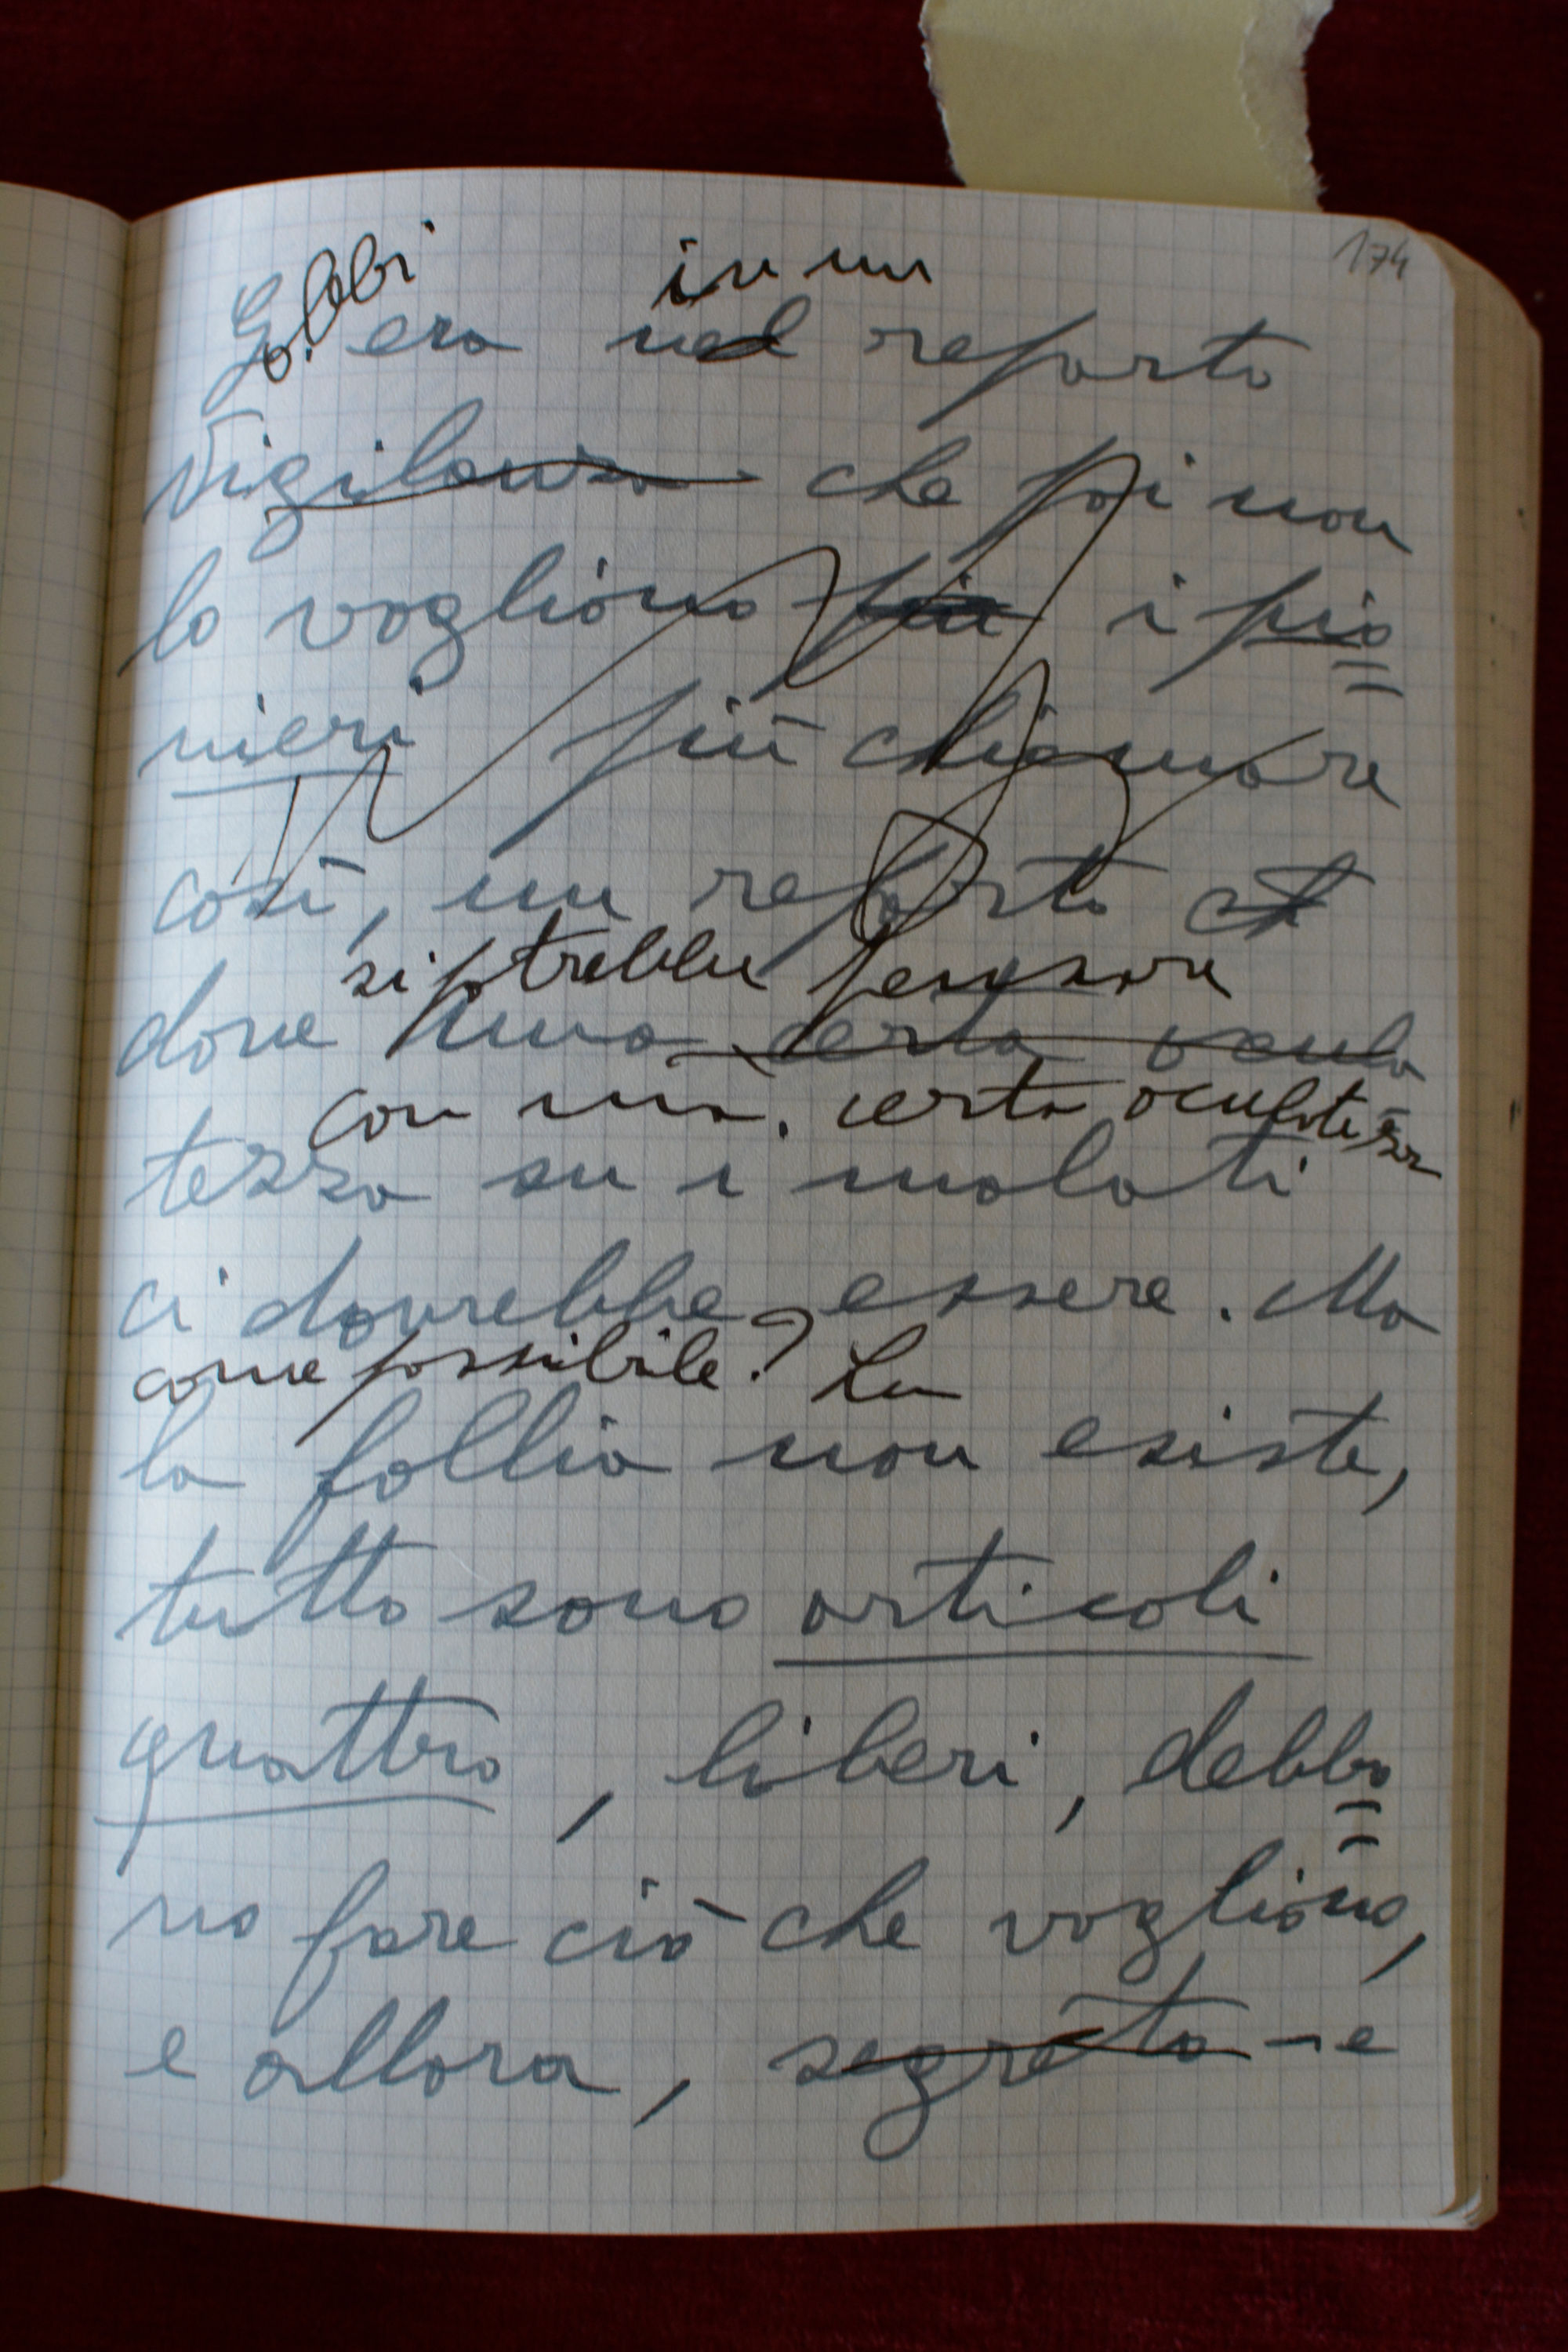 174
Gobbi in un
G. era nel reparto
Vigilanza che poi non
lo vogliono più i pio=
nieri più chiamare
così, un reparto
si potrebbe pensare
dove una certa ocula
con una certa oculatezza
tezza su i malati
ci dovrebbe essere. Ma
come possibile? La
la follia non esiste,
tutto sono articoli
quattro, liberi, debbo=
no fare ciò che vogliono,
e allora, segreta - e